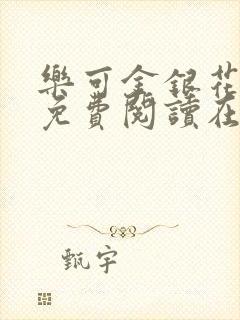 樂可金銀花
免費閱讀在
甄宇